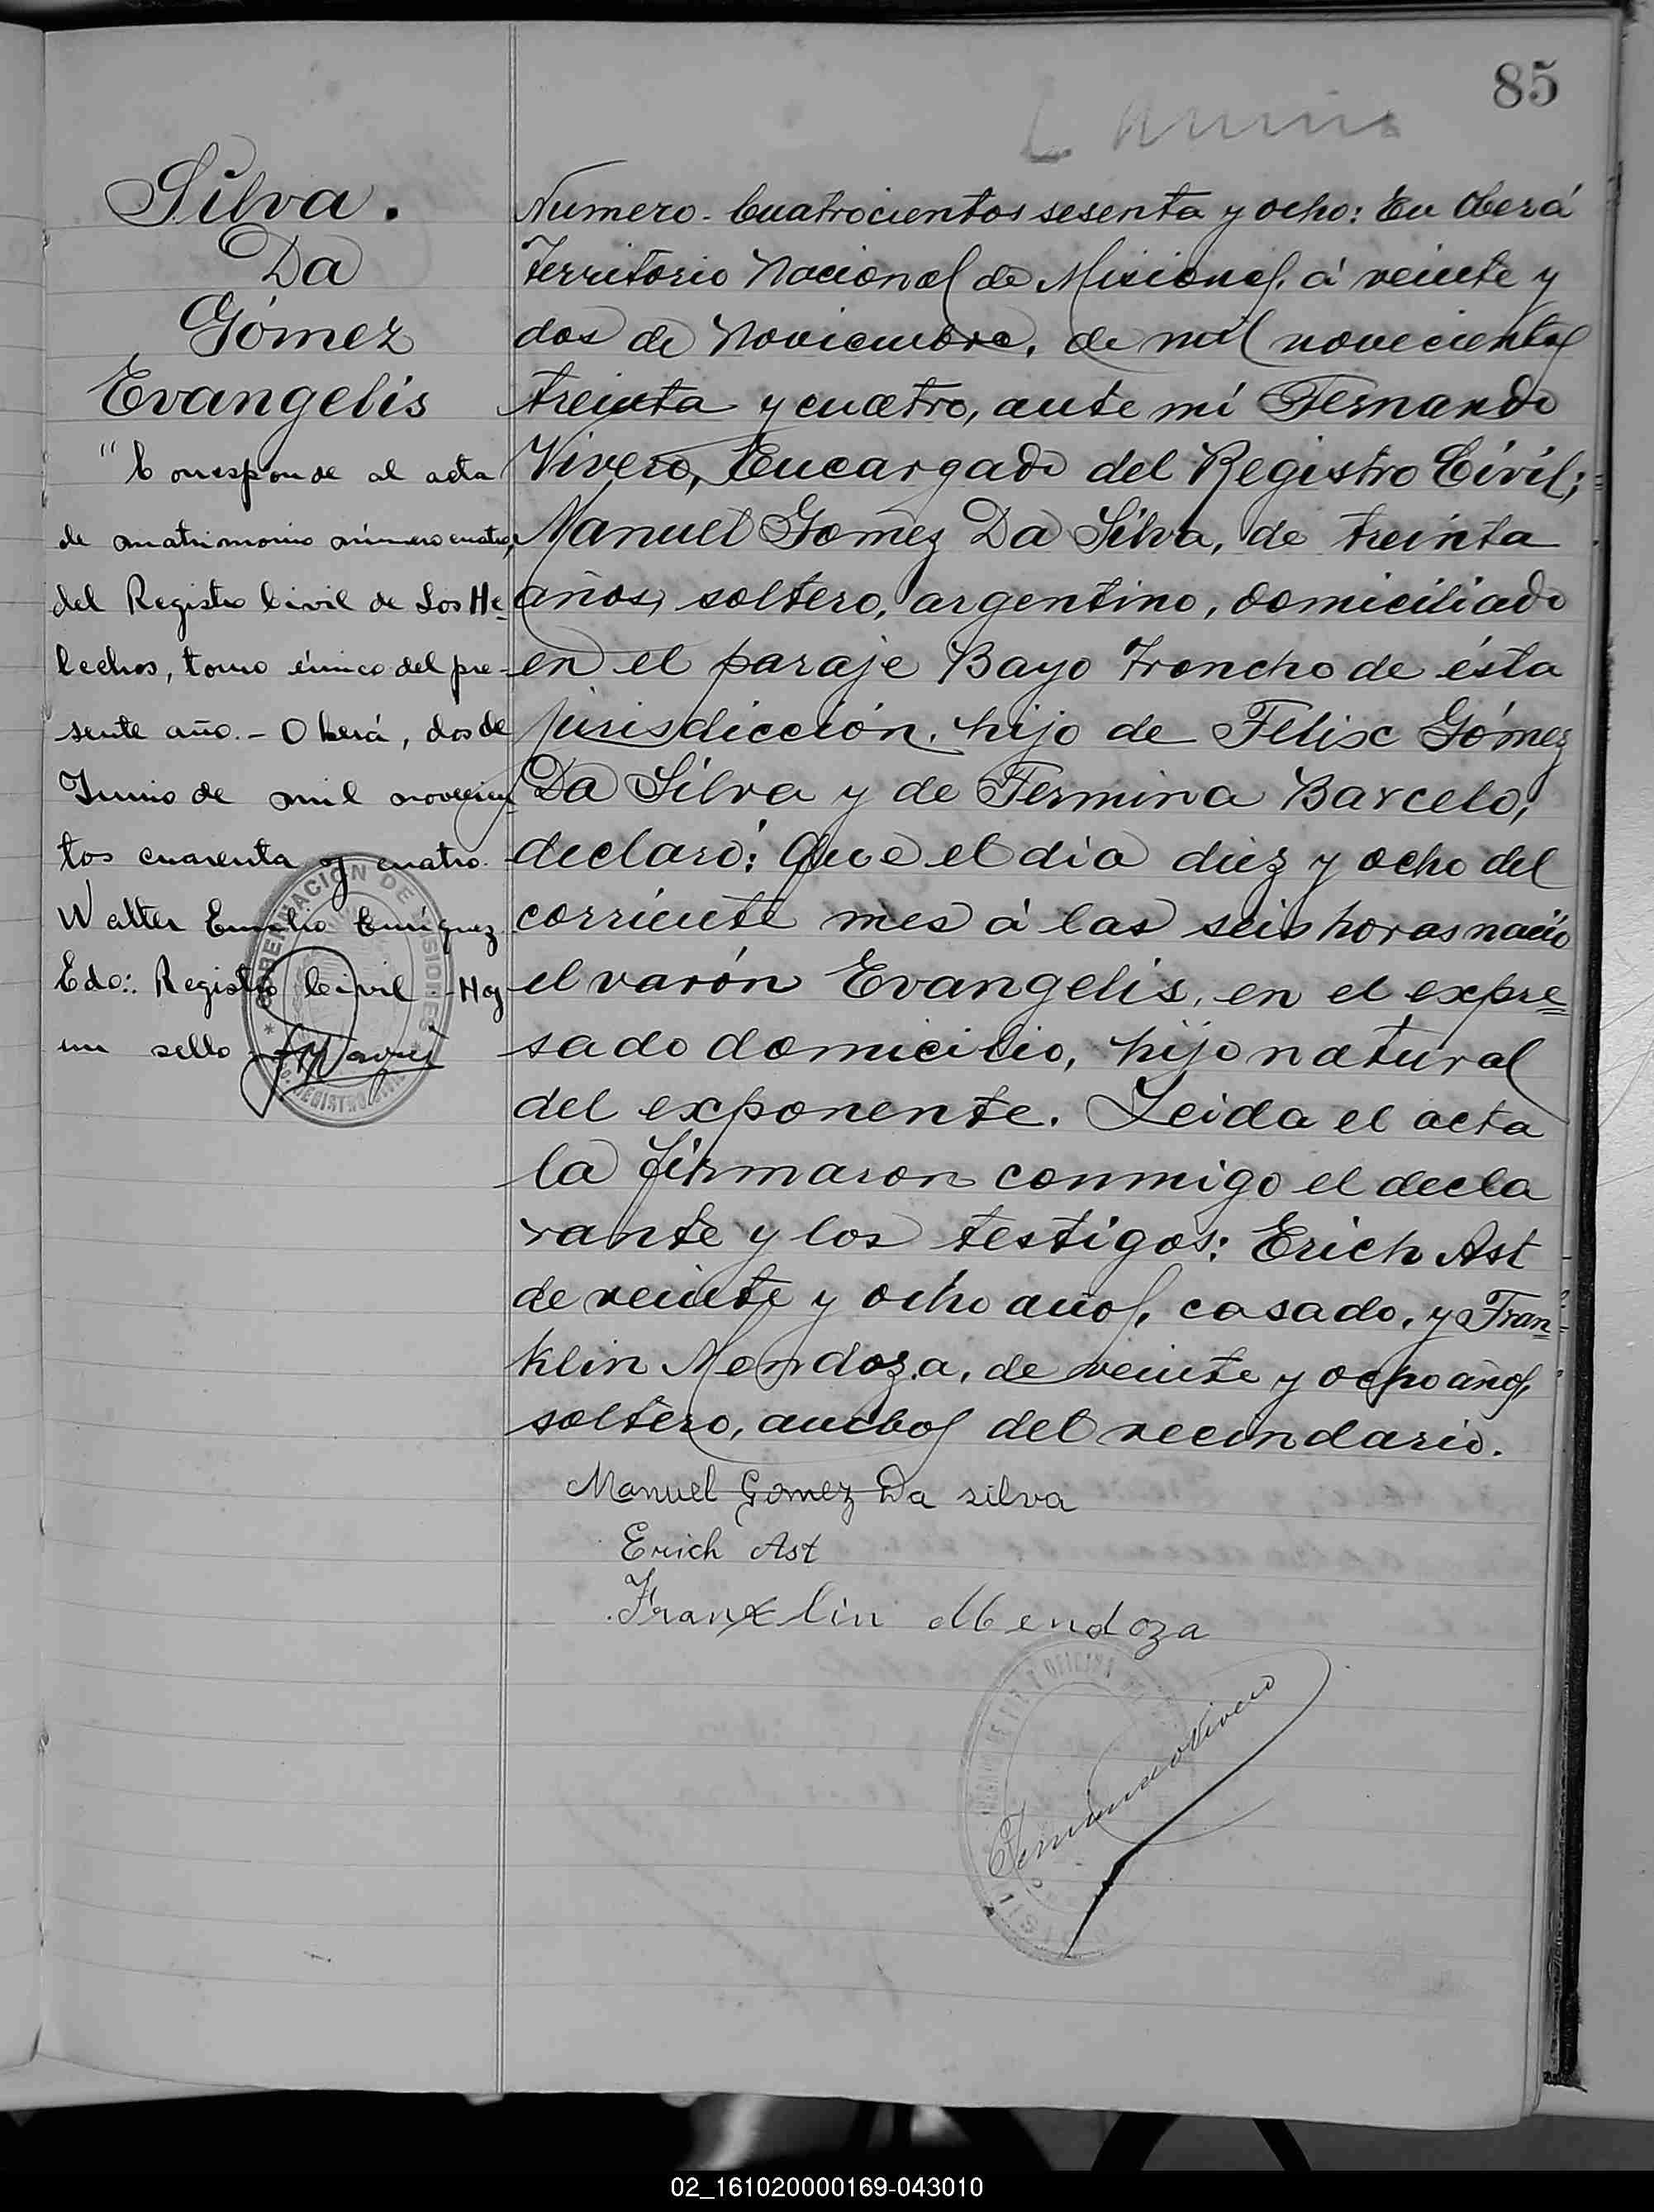 85
Silva.
Da
Gómez
Evangelis
"Corresponde al acta
de matrimonio número cuatro,
del Registro Civil de Los He-
lechos, tomo único del pre-
sente año.- Oberá, dos de
Junio de mil novecien-
tos cuarenta y cuatro.
Walter Emilio Enríquez
Edo: Registro Civil - Hay
un sello
GOBERNACION DE MISIONES
REGISTRO CIVIL
Numero. Cuatrocientos sesenta y ocho: En Oberá
Territorio Nacional de Misiones, á veinte y
dos de Noviembre, de mil novecientos
treinta y cuatro, ante mí Fernando
Vivero, Encargado del Registro Civil;
Manuel Gomez Da Silva, de treinta
años, soltero, argentino, domiciliado
en el paraje Bayo Troncho de ésta
jurisdicción, hijo de Felix Gómez
Da Silva y de Fermina Barcelo,
declaró: Que el dia diez y ocho del
corriente mes á las seis horas nació
el varón Evangelis, en el expre=
sado domicilio, hijo natural
del exponente. Leida el acta
la firmaron conmigo el decla
rante y los testigos: Erich Ast
de veinte y ocho años, casado, y Fran=
klin Mendoza, de veinte y ocho años,
soltero, ambos del vecindario.
Manuel Gomez Da silva
Erich Ast
Franklin Mendoza
Fernando Vivero
02_161020000169-043010